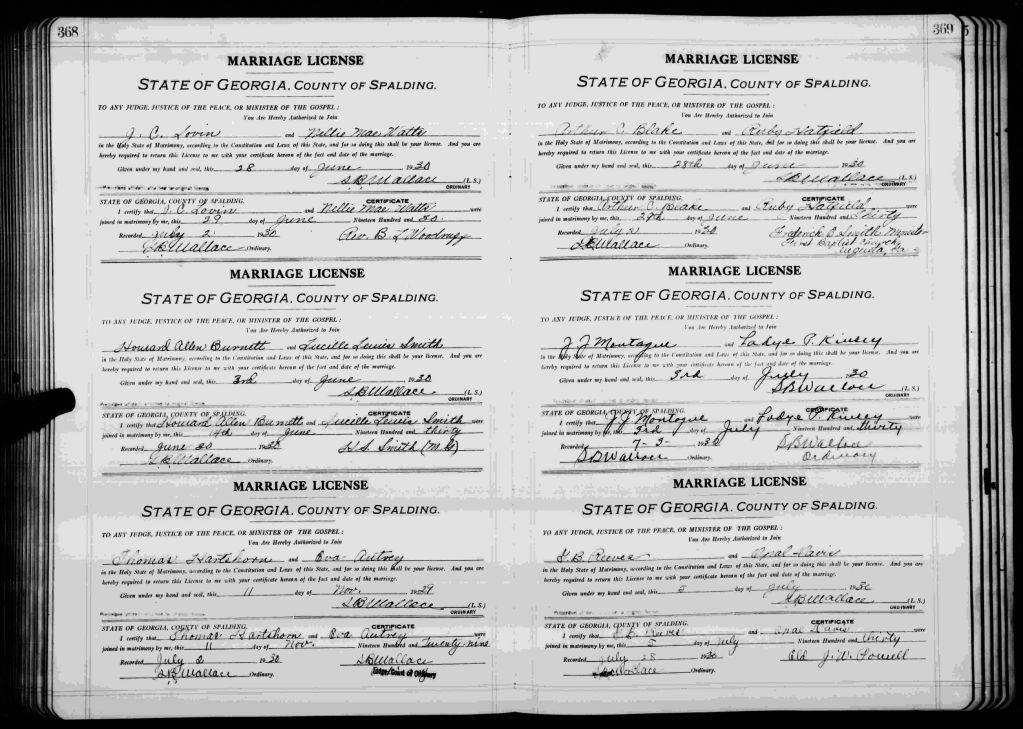 368
MARRIAGE LICENSE
STATE OF GEORGIA, COUNTY OF SPALDING.
TO ANY JUDGE, JUSTICE OF THE PEACE, OR MINISTER OF THE GOSPEL:
You Are Hereby Authorized to Join
J. C. Lovin and Nellie Mae Watts
in the Holy State of Matrimony, according to the Constitution and Laws of this State, and for so doing this shall be your license. And you are
hereby required to return this License to me with your certificate hereon of the fact and date of the marriage.
Given under my hand and seal, this 28 day of June 1930
S.B. Wallace (L. S.)
ORDINARY
STATE OF GEORGIA, COUNTY OF SPALDING. CERTIFICATE
I certify that J. C. Lovin and Nellie Mae Watts were
joined in matrimony by me, this 29 day of June Nineteen Hundred and 30
Recorded July 2 1930 Rev. B. L.
S.B. Wallace Ordinary.
MARRIAGE LICENSE
STATE OF GEORGIA, COUNTY OF SPALDING.
TO ANY JUDGE, JUSTICE OF THE PEACE, OR MINISTER OF THE GOSPEL:
You Are Hereby Authorized to Join
Howard Allen Burnett and Lucille Lewis Smith
in the Holy State of Matrimony, according to the Constitution and Laws of this State, and for so doing this shall be your license. And you are
hereby required to return this License to me with your certificate hereon of the fact and date of the marriage.
Given under my hand and seal, this 3rd day of June 1930
S.B. Wallace (L. S.)
ORDINARY
STATE OF GEORGIA, COUNTY OF SPALDING. CERTIFICATE
I certify that Howard Allen Burnett and Lucille Lewis Smith were
joined in matrimony by me, this day of June Nineteen Hundred and thirty
Recorded June 30 1930 H. S. Smith (M.G)
S.B. Wallace Ordinary.
MARRIAGE LICENSE
STATE OF GEORGIA, COUNTY OF SPALDING.
TO ANY JUDGE, JUSTICE OF THE PEACE, OR MINISTER OF THE GOSPEL:
You Are Hereby Authorized to Join
Thomas Hartshorn and Eva Autrey
in the Holy State of Matrimony, according to the Constitution and Laws of this State, and for so doing this shall be your license. And you are
hereby required to return this License to me with your certificate hereon of the fact and date of the marriage.
Given under my hand and seal, this 11 day of Nov. 1929
S.B. Wallace (L. S.)
ORDINARY
STATE OF GEORGIA, COUNTY OF SPALDING. CERTIFICATE
I certify that Thomas Hartshorn and Eva Autrey were
joined in matrimony by me, this 11 day of Nov. Nineteen Hundred and Twenty nine
Recorded July 2 1930 S.B. Wallace
S.B. Wallace Ordinary. Judge/Court of Ordinary
369
MARRIAGE LICENSE
STATE OF GEORGIA, COUNTY OF SPALDING.
TO ANY JUDGE, JUSTICE OF THE PEACE, OR MINISTER OF THE GOSPEL:
You Are Hereby Authorized to Join
Arthur C. Blake and Ruby Hatfield
in the Holy State of Matrimony, according to the Constitution and Laws of this State, and for so doing this shall be your license. And you are
hereby required to return this License to me with your certificate hereon of the fact and date of the marriage.
Given under my hand and seal, this 28th day of June 1930
S.B. Wallace (L. S.)
ORDINARY
STATE OF GEORGIA, COUNTY OF SPALDING. CERTIFICATE
I certify that Arthur C. Blake and Ruby Hatfield were
joined in matrimony by me, this 29th day of June Nineteen Hundred and thirty
Recorded July 2 1930 Frederick E Smith Minister
S.B. Wallace Ordinary. First Baptist Church
Augusta, Ga
MARRIAGE LICENSE
STATE OF GEORGIA, COUNTY OF SPALDING.
TO ANY JUDGE, JUSTICE OF THE PEACE, OR MINISTER OF THE GOSPEL:
You Are Hereby Authorized to Join
J J Montague and Ladye P. Kinsey
in the Holy State of Matrimony, according to the Constitution and Laws of this State, and for so doing this shall be your license. And you are
hereby required to return this License to me with your certificate hereon of the fact and date of the marriage.
Given under my hand and seal, this 3rd day of July 1930
S B Wallace (L. S.)
ORDINARY
STATE OF GEORGIA, COUNTY OF SPALDING. CERTIFICATE
I certify that J J Montague and Ladye P. Kinsey were
joined in matrimony by me, this 3rd day of July Nineteen Hundred and thirty
Recorded 7-3- 1930 S B Wallace
S B Wallace Ordinary. Ordinary
MARRIAGE LICENSE
STATE OF GEORGIA, COUNTY OF SPALDING.
TO ANY JUDGE, JUSTICE OF THE PEACE, OR MINISTER OF THE GOSPEL:
You Are Hereby Authorized to Join
B. Reeves and Opal Davis
in the Holy State of Matrimony, according to the Constitution and Laws of this State, and for so doing this shall be your license. And you are
hereby required to return this License to me with your certificate hereon of the fact and date of the marriage.
Given under my hand and seal, this 5 day of July 1930
S.B. Wallace (L. S.)
ORDINARY
STATE OF GEORGIA, COUNTY OF SPALDING. CERTIFICATE
I certify that B. Reeves and Opal Davis were
joined in matrimony by me, this 5 day of July Nineteen Hundred and thirty
Recorded July 28 1930 Eld J. W.
S.B. Wallace Ordinary.